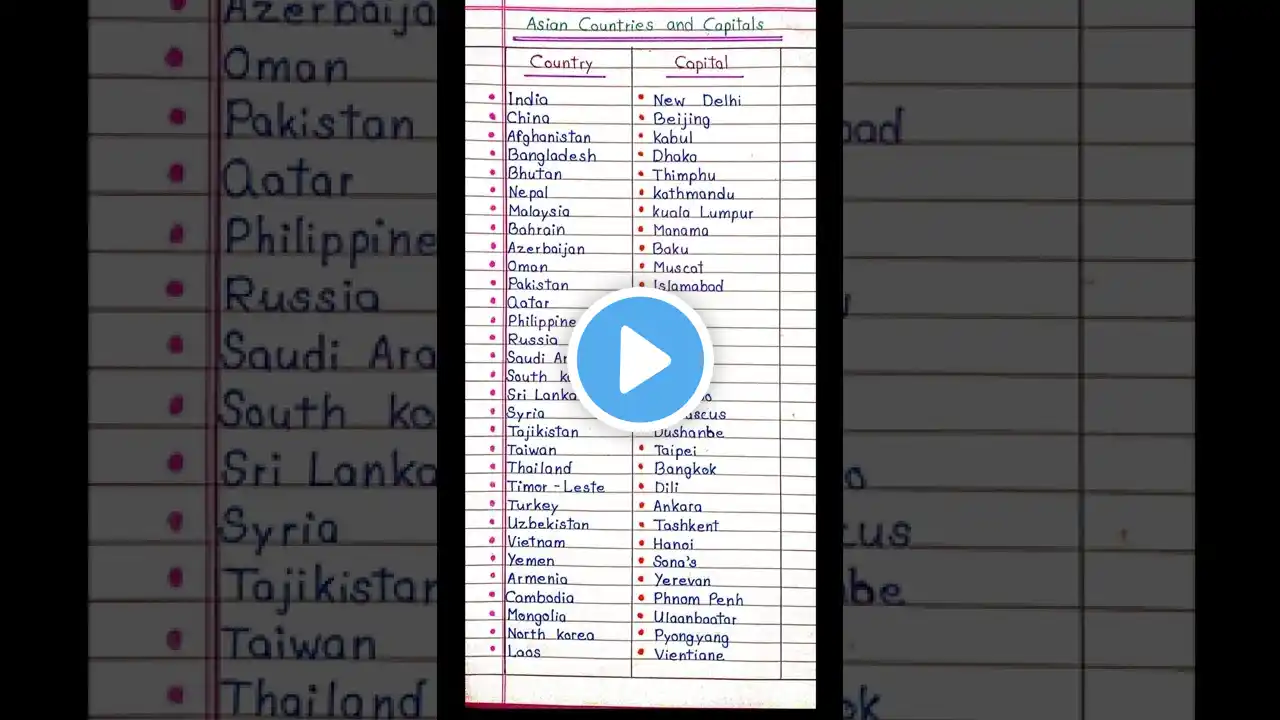 Azerbaija
Oman
Pakistan
Qatar
Philippine
Russia
Saudi Ara
South ko
Sri Lanka
Syria
Tajikistan
Taiwan
Thailand
Asian Countries and Capitals
Country Capital
• India • New Delhi
• China • Beijing
• Afghanistan • Kabul
• Bangladesh • Dhaka
• Bhutan • Thimphu
• Nepal • kathmandu
• Malaysia • kuala Lumpur
• Bahrain • Manama
• Azerbaijan • Baku
• Oman • Muscat
• Pakistan • Islamabad
• Qatar
• Philippine
• Russia
• Saudi Ar
• South k
• Sri Lanka
• Syria scus
• Tajikistan Dushanbe
• Taiwan • Taipei
• Thailand • Bangkok
• Timor - Leste • Dili
• Turkey • Ankara
• Uzbekistan • Tashkent
• Vietnam • Hanoi
• Yemen • Sana's
• Armenia • Yerevan
• Cambodia • Phnom Penh
• Mongolia • Ulaanbaatar
• North korea • Pyongyang
• Laos • Vientiane
bad
cus
be
ok